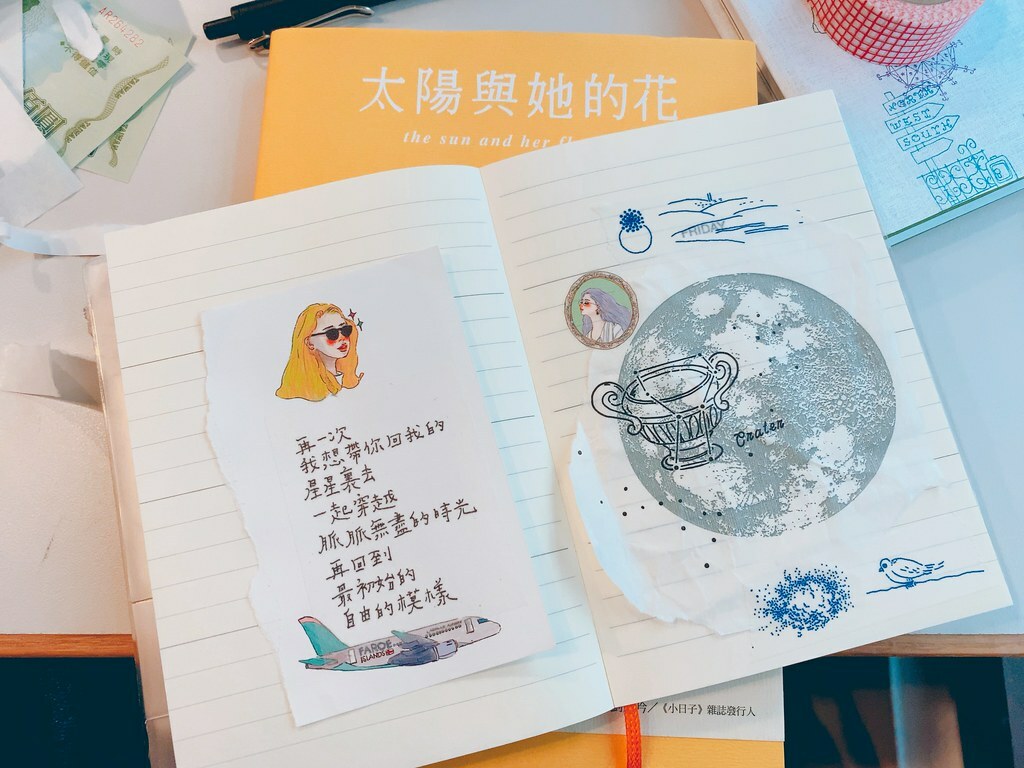 AR264282
TAIWAN
太陽與她的花
the sun and her fl
NORTH
WEST
SOUTH
FRIDAY
Crater
再一次
我想帶你回我的
星星裏去
一起穿越
脈脈無盡的時光
再回到
最初始的
自由的模樣
FAROE
ISLANDS
／《小日子》雜誌發行人